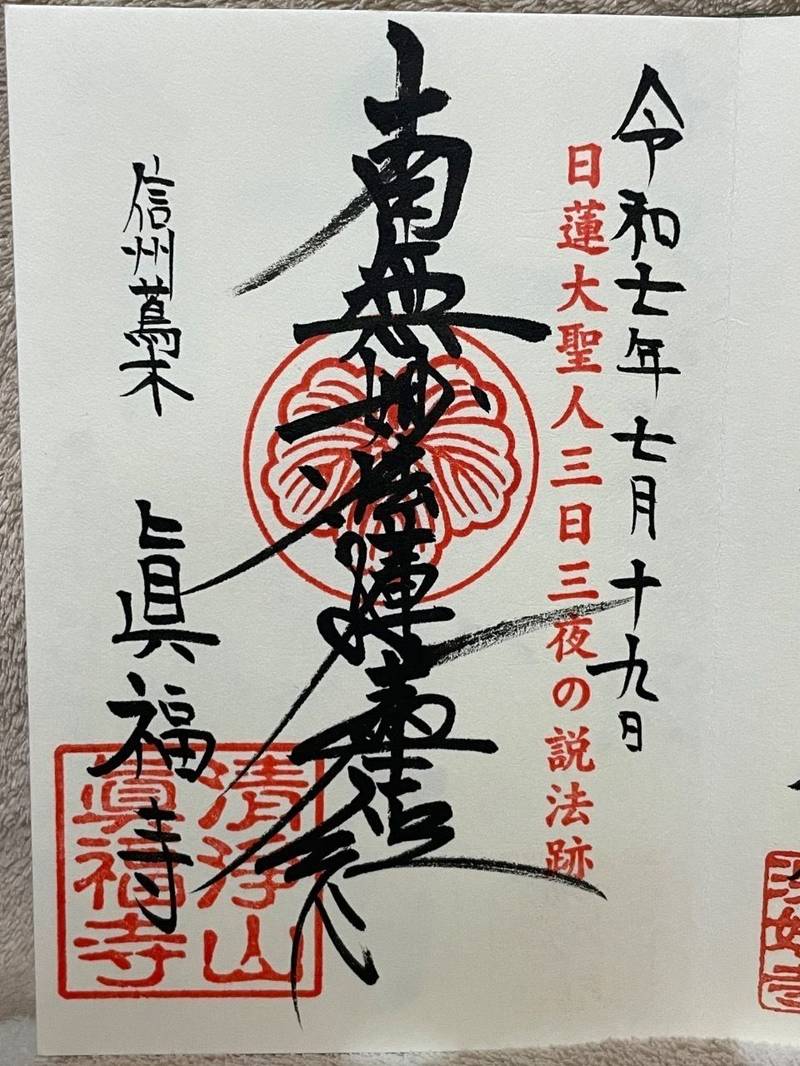 令和七年七月十九日
日蓮大聖人三日三夜の説法跡
南無妙法蓮華経
信州蔦木 眞福寺
清浄山
眞福寺